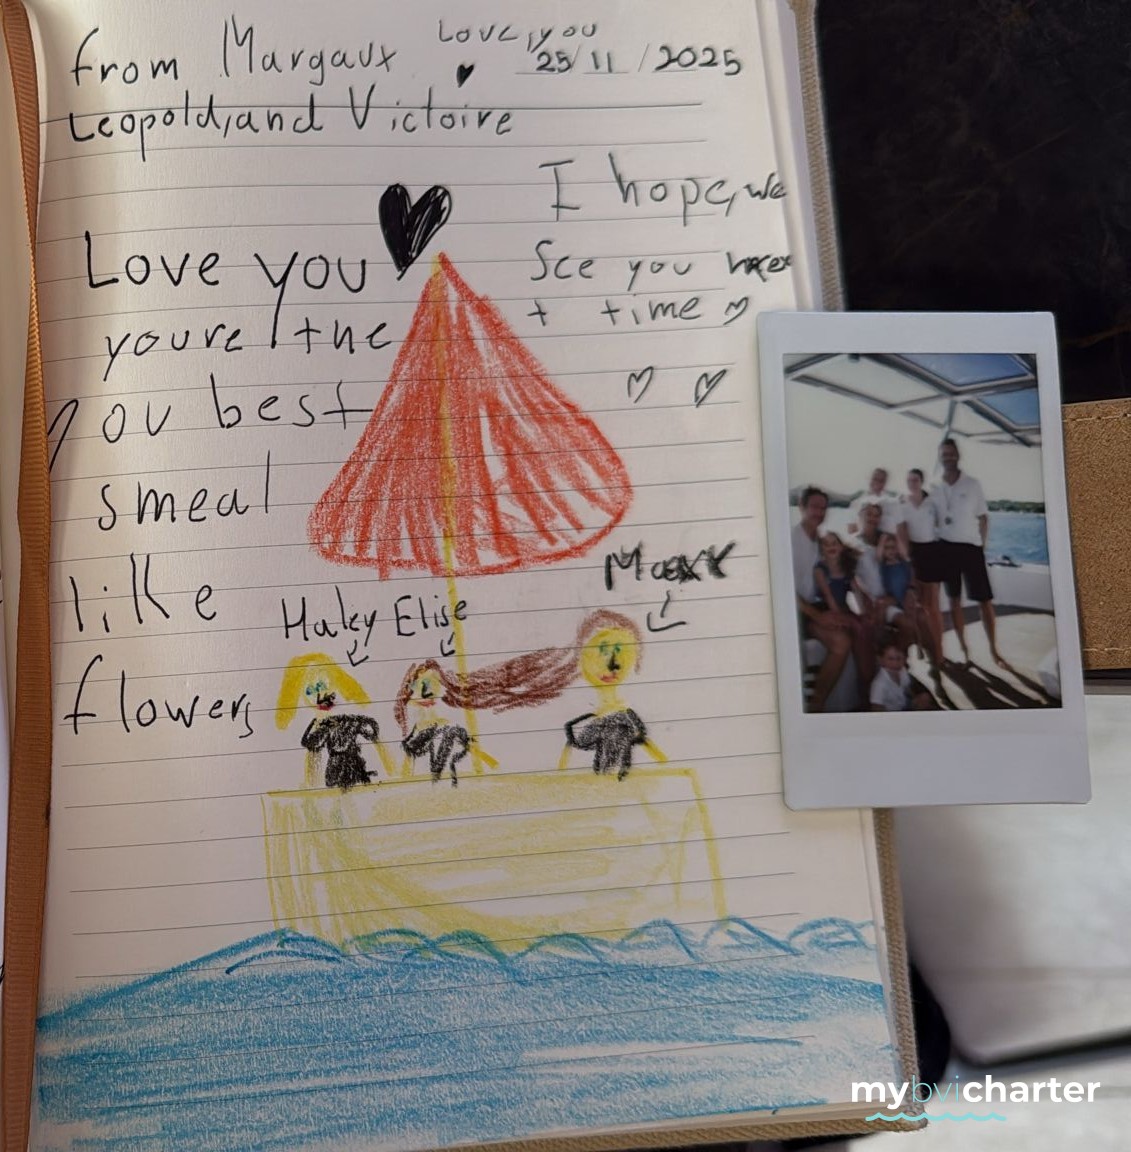 Love, you
from Margaux
25/11/2025
Leopold, and Victoire
I hope, we
See you nex
t time
Love you
youre the
You best
smeal
like
flowers
Haley Elise
mybvicharter